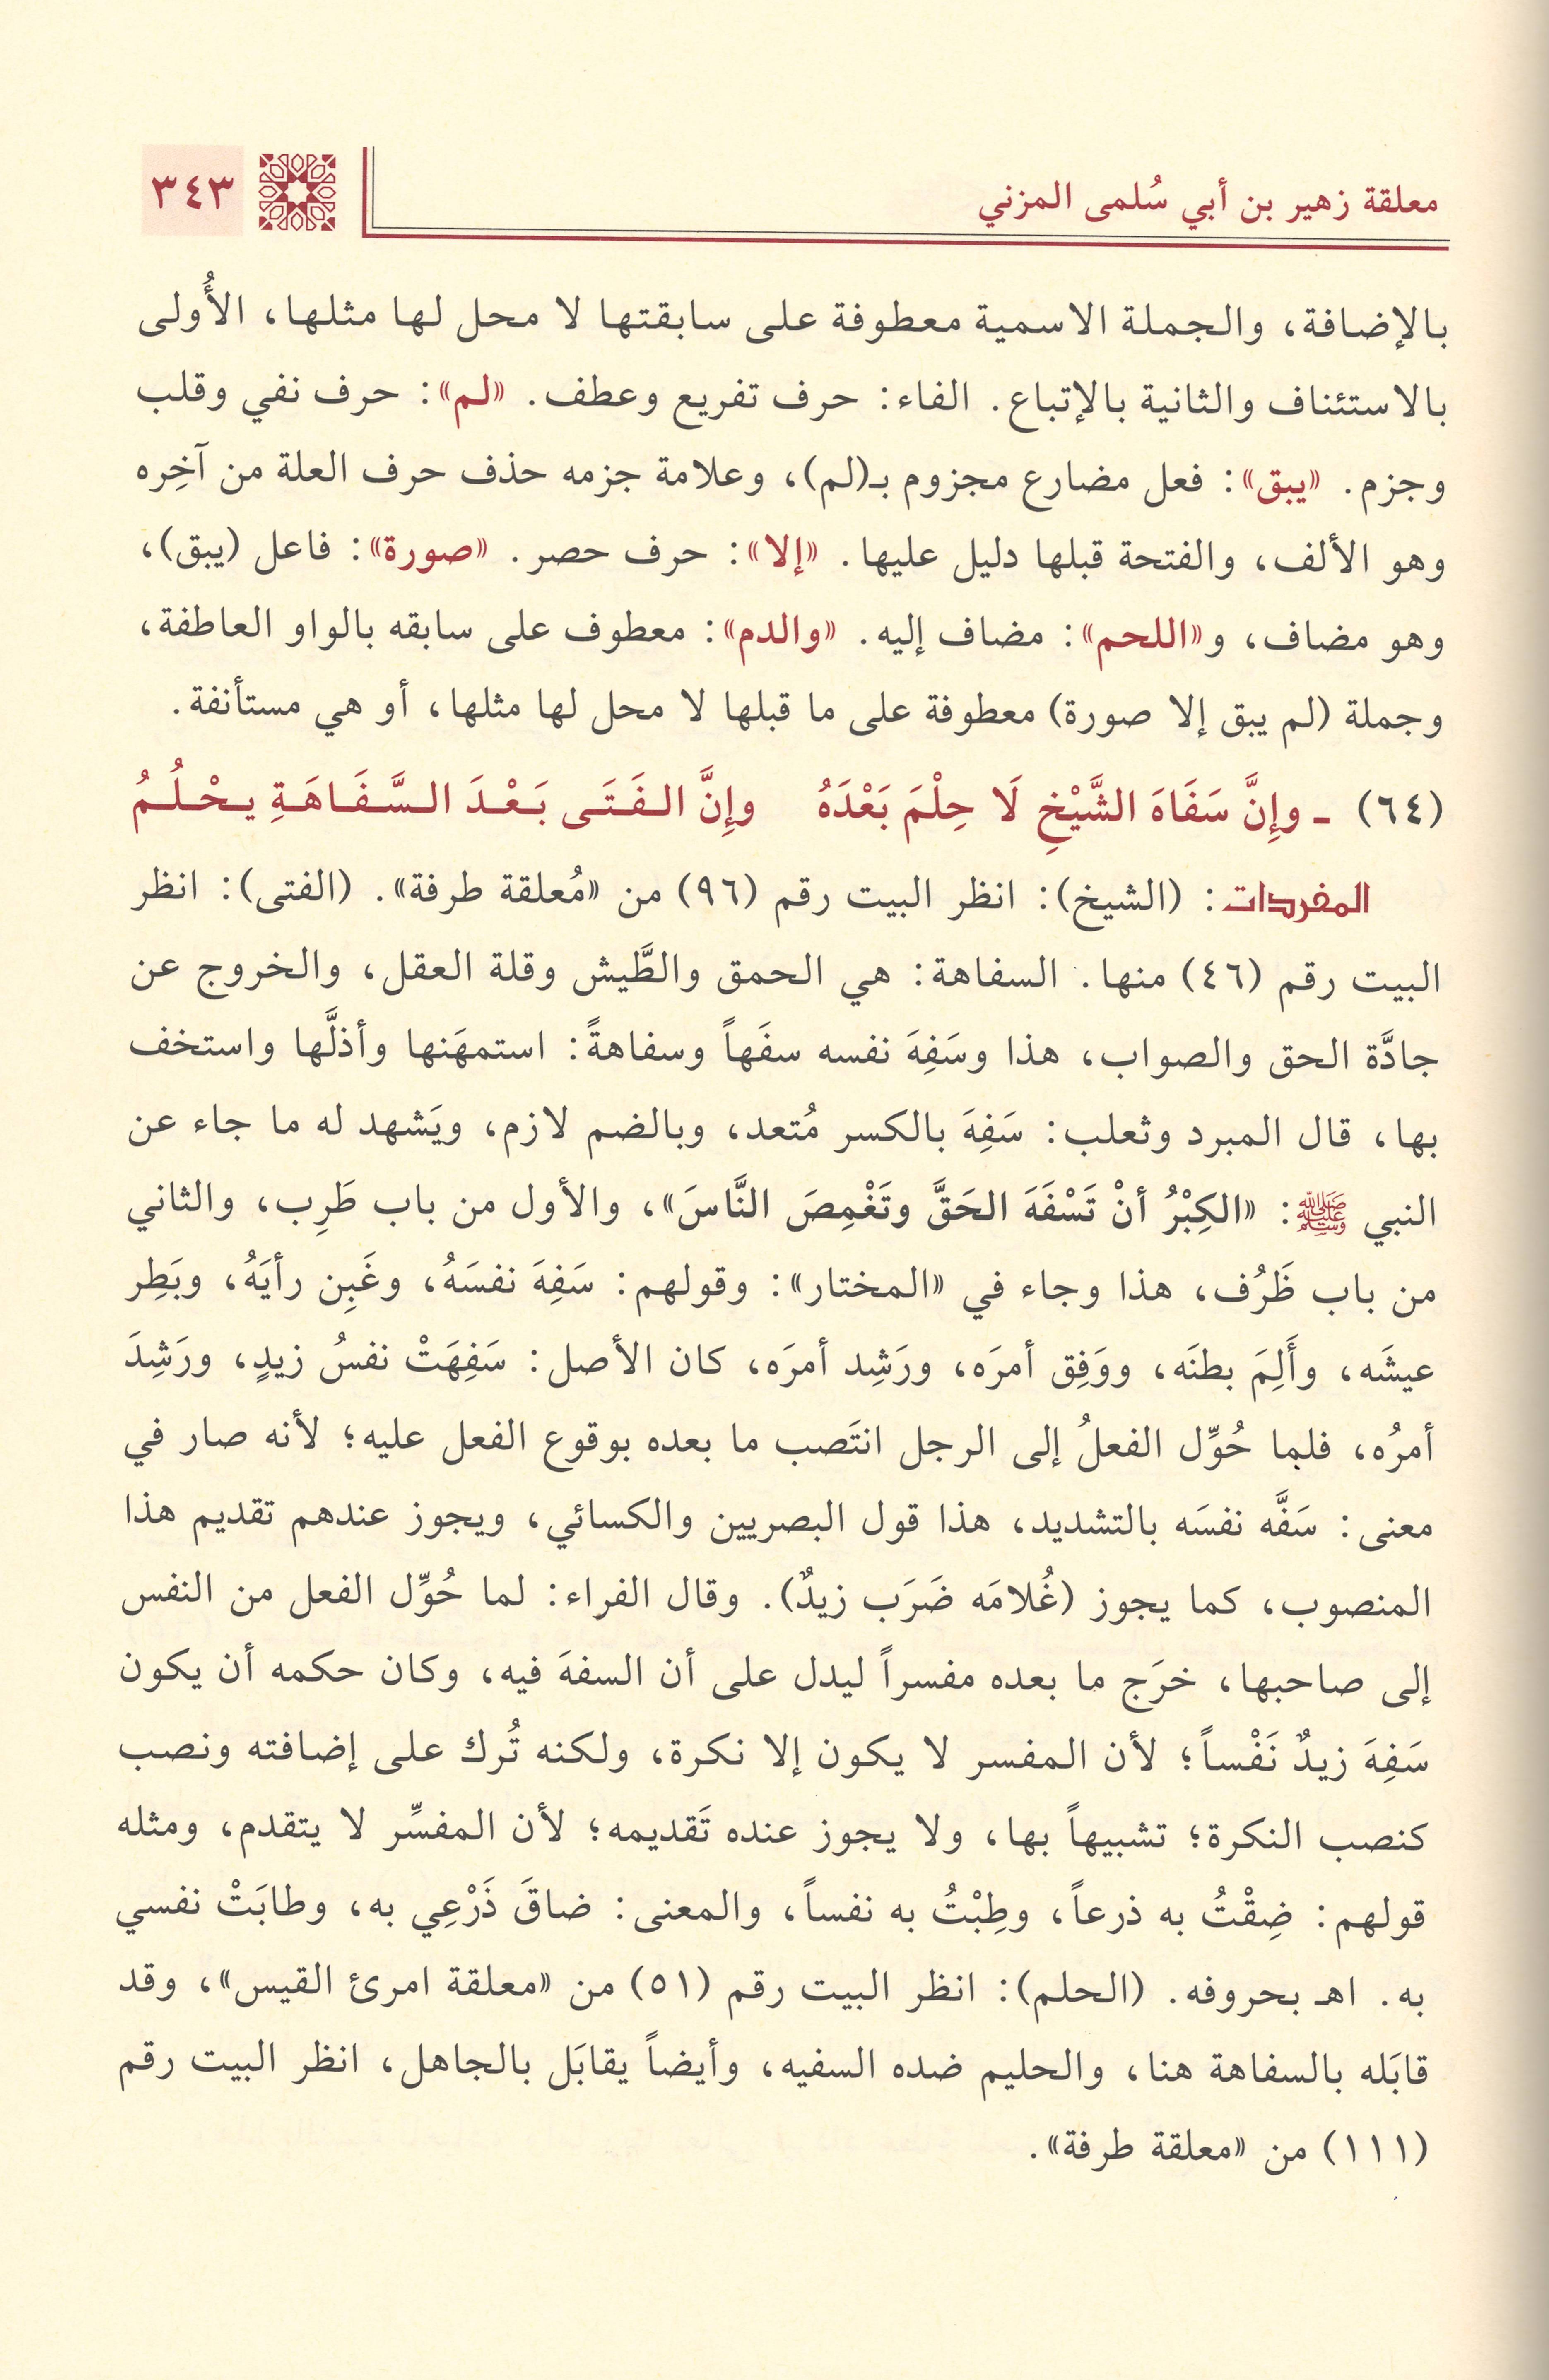 معلقة زهير بن أبي سُلمى المزني
٣٤٣
بالإضافة، والجملة الاسمية معطوفة على سابقتها لا محل لها مثلها، الأُولى
بالاستئناف والثانية بالإتباع. الفاء: حرف تفريع وعطف. «لم»: حرف نفي وقلب
وجزم. «يبق»: فعل مضارع مجزوم بـ(لم)، وعلامة جزمه حذف حرف العلة من آخِره
وهو الألف، والفتحة قبلها دليل عليها. «إلا»: حرف حصر. «صورة»: فاعل (يبق)،
وهو مضاف، و«اللحم»: مضاف إليه. «والدم»: معطوف على سابقه بالواو العاطفة،
وجملة (لم يبق إلا صورة) معطوفة على ما قبلها لا محل لها مثلها، أو هي مستأنفة.
(٦٤) ـ وإِنَّ سَفَاهَ الشَّيْخِ لَا حِلْمَ بَعْدَهُ وإِنَّ الفَتَى بَعْدَ السَّفَاهَةِ يحْلُمُ
المفردات: (الشيخ): انظر البيت رقم (٩٦) من «مُعلقة طرفة». (الفتى): انظر
البيت رقم (٤٦) منها. السفاهة: هي الحمق والطَّيش وقلة العقل، والخروج عن
جادَّة الحق والصواب، هذا وسَفِهَ نفسه سفَهاً وسفاهةً: استمهَنها وأذلَّها واستخف
بها، قال المبرد وثعلب: سَفِهَ بالكسر مُتعد، وبالضم لازم، ويَشهد له ما جاء عن
النبي ﷺ: «الكِبْرُ أنْ تَسْفَهَ الحَقَّ وتَغْمِصَ النَّاسَ»، والأول من باب طَرِب، والثاني
من باب ظَرُف، هذا وجاء في «المختار»: وقولهم: سَفِهَ نفسَهُ، وغَبِن رأيَهُ، وبَطِر
عيشَه، وأَلِمَ بطنَه، ووَفِق أمرَه، ورَشِد أمرَه، كان الأصل: سَفِهَتْ نفسُ زيدٍ، ورَشِدَ
أمرُه، فلما حُوِّل الفعلُ إلى الرجل انتَصب ما بعده بوقوع الفعل عليه؛ لأنه صار في
معنى: سَفَّه نفسَه بالتشديد، هذا قول البصريين والكسائي، ويجوز عندهم تقديم هذا
المنصوب، كما يجوز (غُلامَه ضَرَب زيدٌ). وقال الفراء: لما حُوِّل الفعل من النفس
إلى صاحبها، خرَج ما بعده مفسراً ليدل على أن السفهَ فيه، وكان حكمه أن يكون
سَفِهَ زيدٌ نَفْساً؛ لأن المفسر لا يكون إلا نكرة، ولكنه تُرك على إضافته ونصب
كنصب النكرة؛ تشبيهاً بها، ولا يجوز عنده تَقديمه؛ لأن المفسِّر لا يتقدم، ومثله
قولهم: ضِقْتُ به ذرعاً، وطِبْتُ به نفساً، والمعنى: ضاقَ ذَرْعِي به، وطابَتْ نفسي
به. اهـ بحروفه. (الحلم): انظر البيت رقم (٥١) من «معلقة امرئ القيس»، وقد
قابَله بالسفاهة هنا، والحليم ضده السفيه، وأيضاً يقابَل بالجاهل، انظر البيت رقم
(١١١) من «معلقة طرفة».